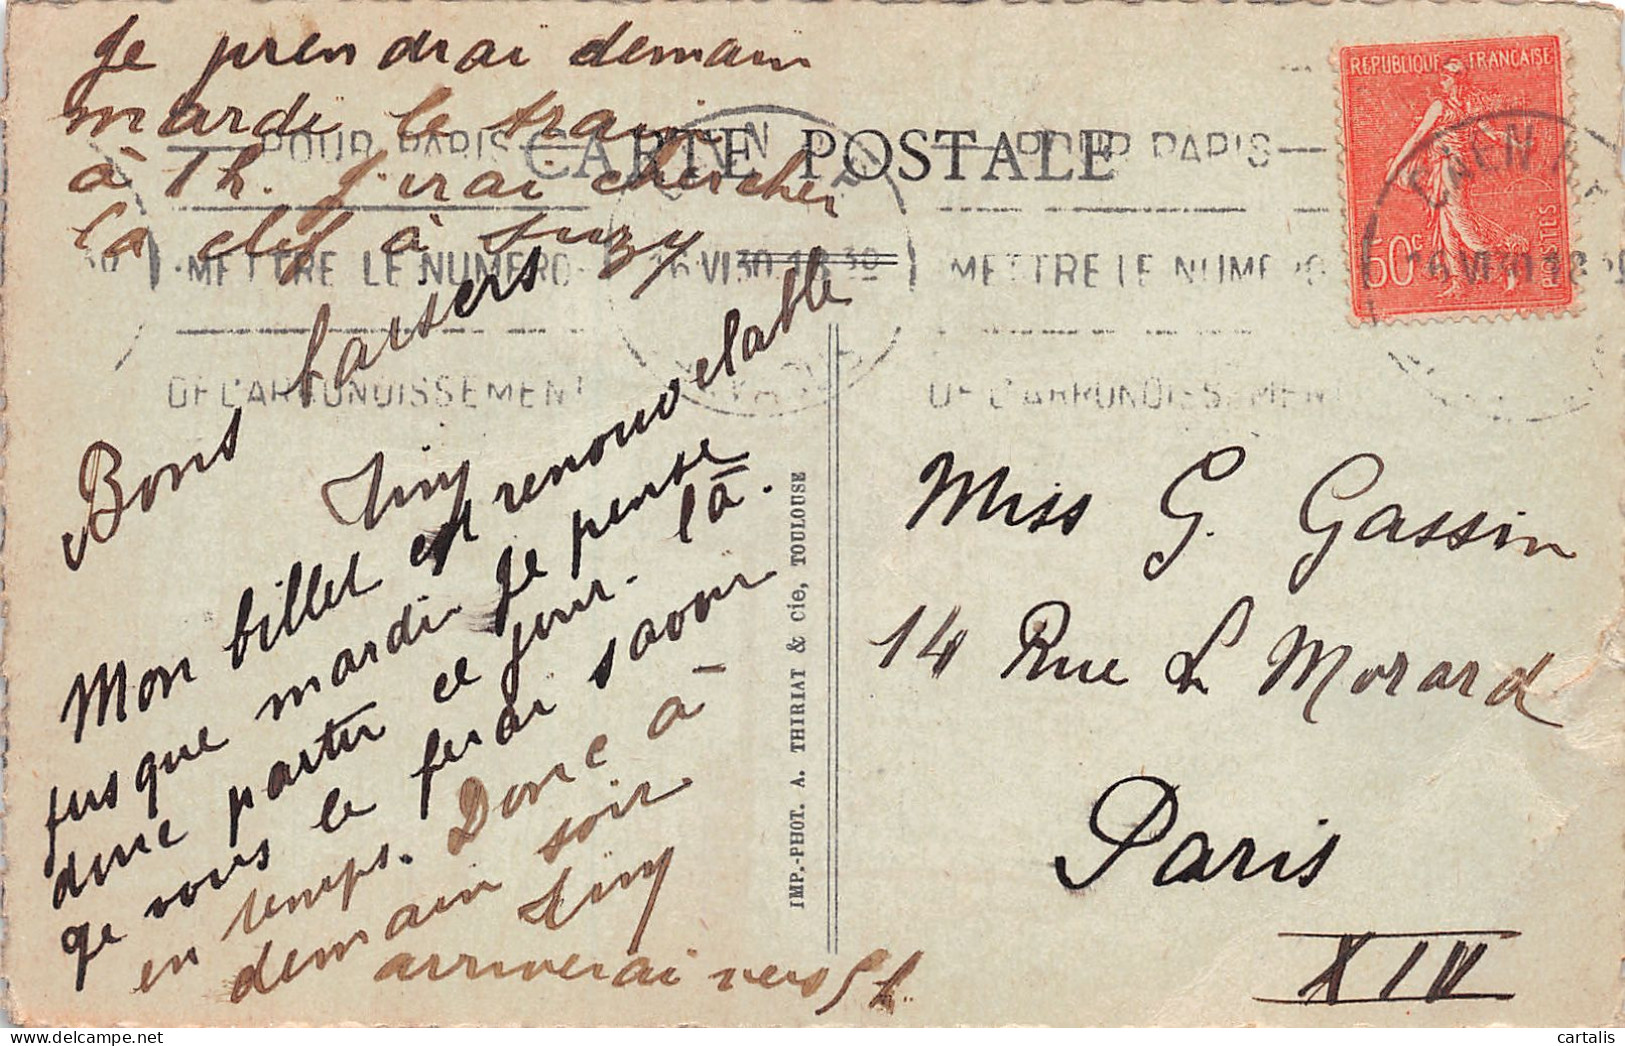 Je prendrai demain
mardi le train
à 7h. J'irai chercher
la clef à Suzy
Bons baisers
Mon billet est renouvelable
jusque mardi. Je pense
donc partir ce jour-là.
Je vous le ferai savoir
en temps. Donc à
demain soir
arriverai vers 5h.
CARTE POSTALE
POUR PARIS
METTRE LE NUMÉRO
DE L'ARRONDISSEMENT
16 VI 30 18 30
POUR PARIS
METTRE LE NUMERO
DE L'ARRONDISSEMENT
REPUBLIQUE FRANÇAISE
50c
POSTES
IMP.-PHOT. A. THIRIAT & cie, TOULOUSE
Miss G. Gassin
14 Rue L Morard
Paris
XIV
cartalis